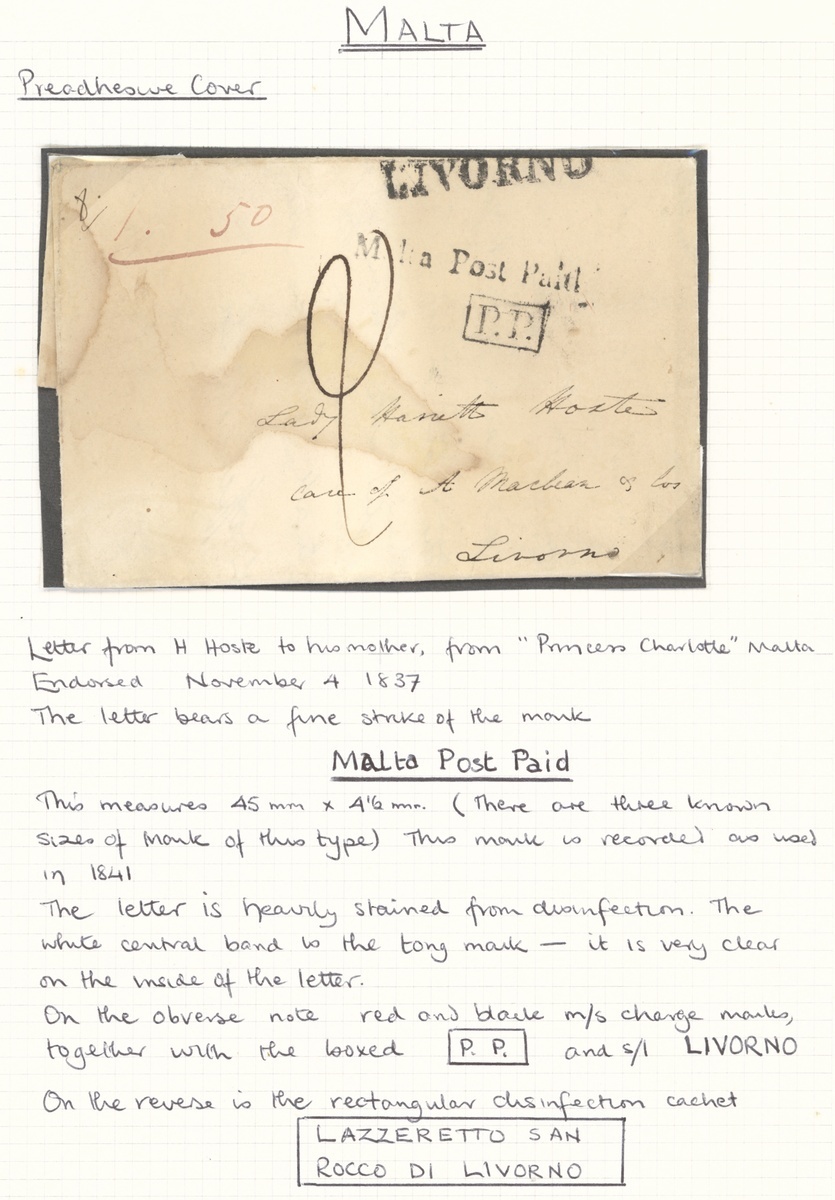 MALTA
Preadhesive Cover
LIVORNO
8/
1. 50
Malta Post Paid
P.P.
Lady Hariett Hoste
care of A Maclean & Co
Livorno
Letter from H Hoste to his mother, from "Princess Charlotte" Malta
Endorsed November 4 1837
The letter bears a fine strike of the mark
Malta Post Paid
This measures 45 mm x 4½ mm. (There are three known
sizes of mark of this type) This mark is recorded as used
in 1841
The letter is heavily stained from disinfection. The
white central band is the tong mark — it is very clear
on the inside of the letter.
On the obverse note red and black m/s charge marks,
together with the boxed P. P. and s/l LIVORNO
On the reverse is the rectangular disinfection cachet
LAZZERETTO SAN
ROCCO DI LIVORNO